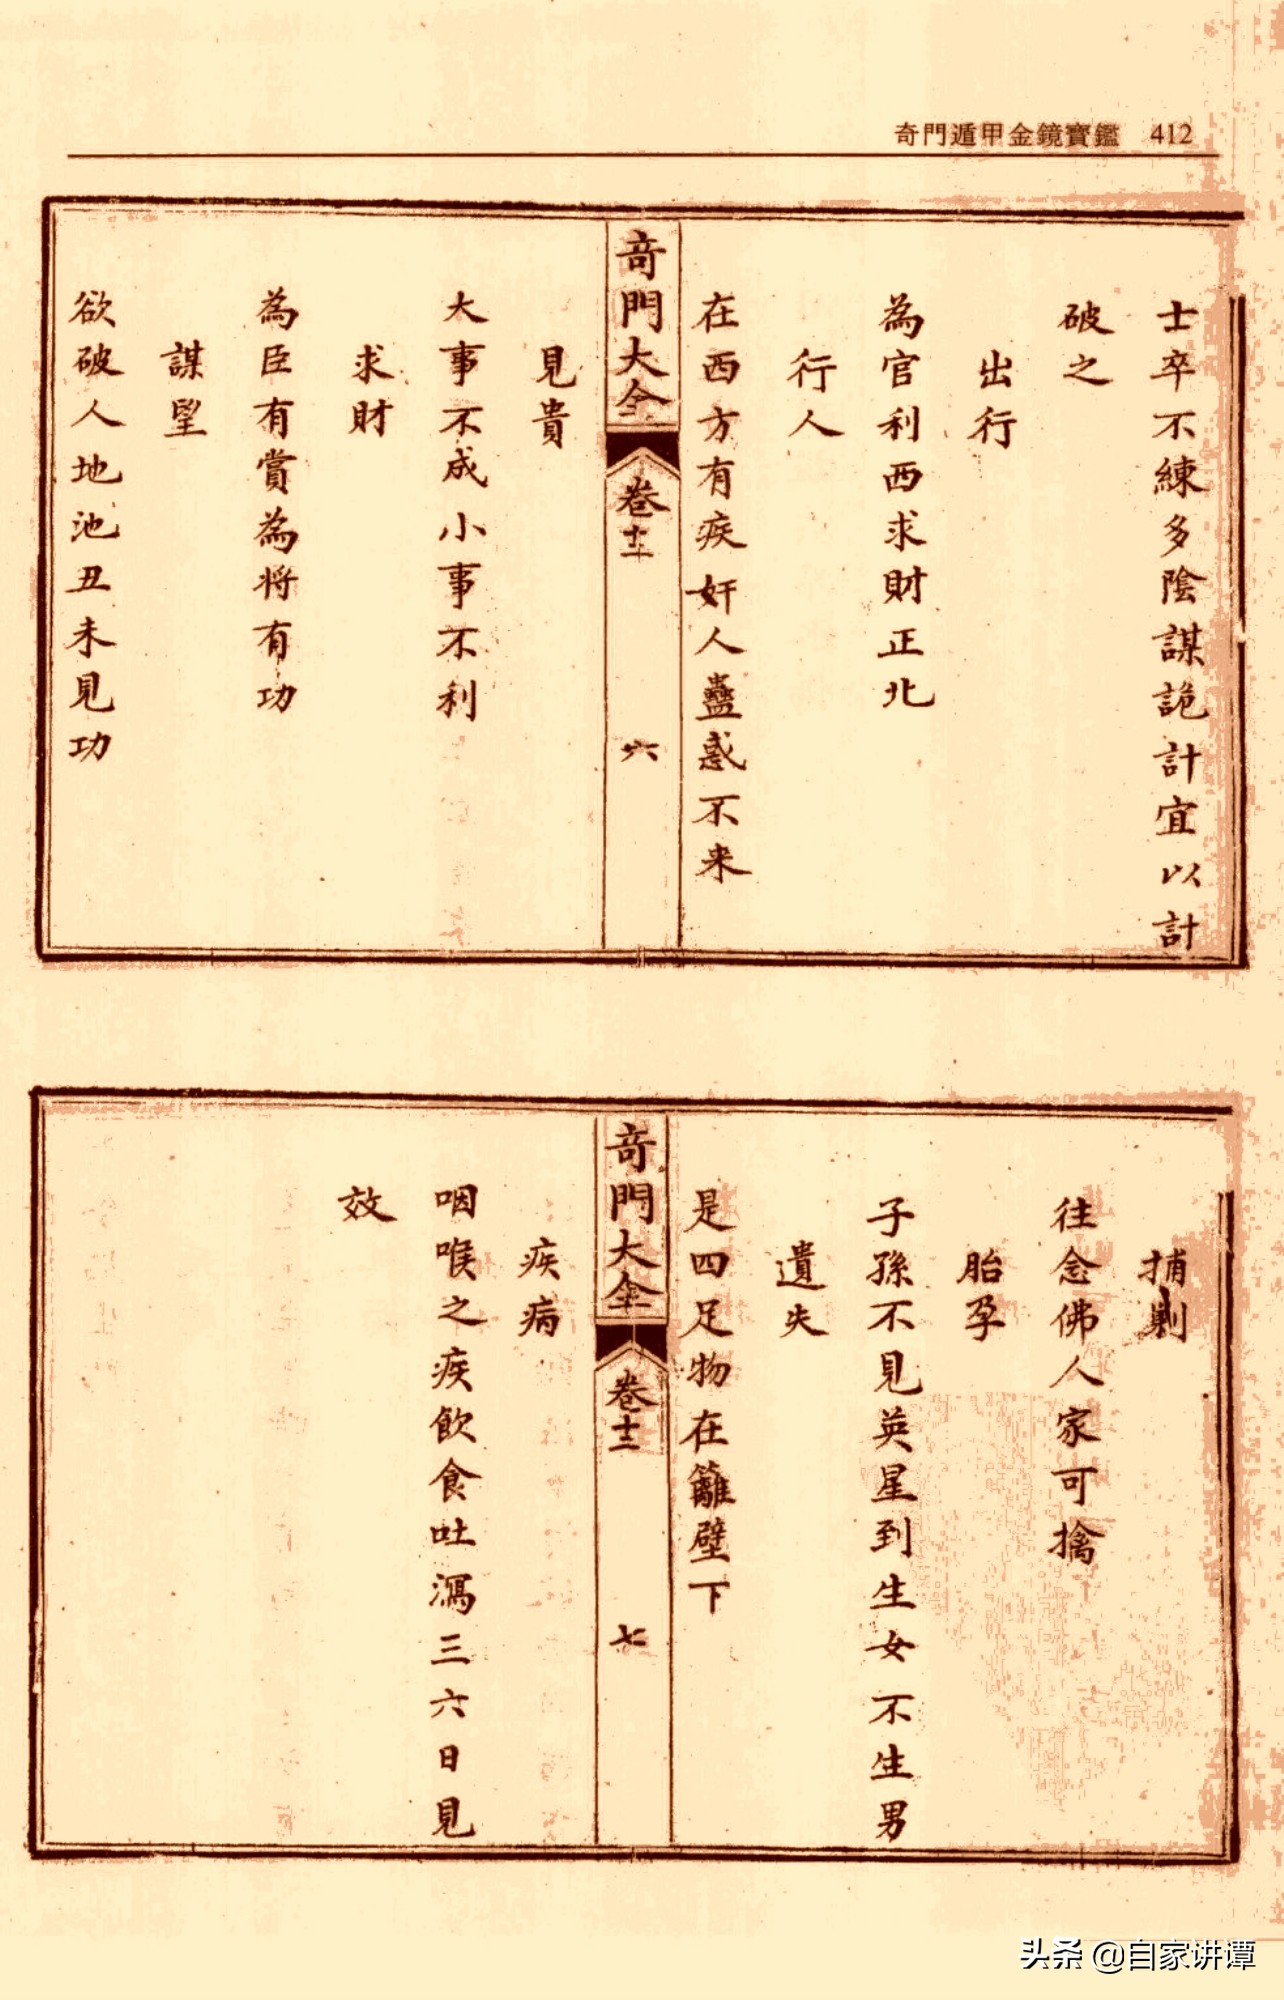 奇門遁甲金鏡寶鑑 412
士卒不練多陰謀詭計宜以計
破之
出行
為官利西求財正北
行人
在西方有疾奸人蠱惑不来
奇門大全 卷十二 六
見貴
大事不成小事不利
求財
為臣有賞為将有功
謀望
欲破人地池丑未見功
捕剿
往念佛人家可擒
胎孕
子孫不見英星到生女不生男
遺失
是四足物在籬壁下
奇門大全 卷十二 七
疾病
咽喉之疾飲食吐瀉三六日見
效
头条 @自家讲谭